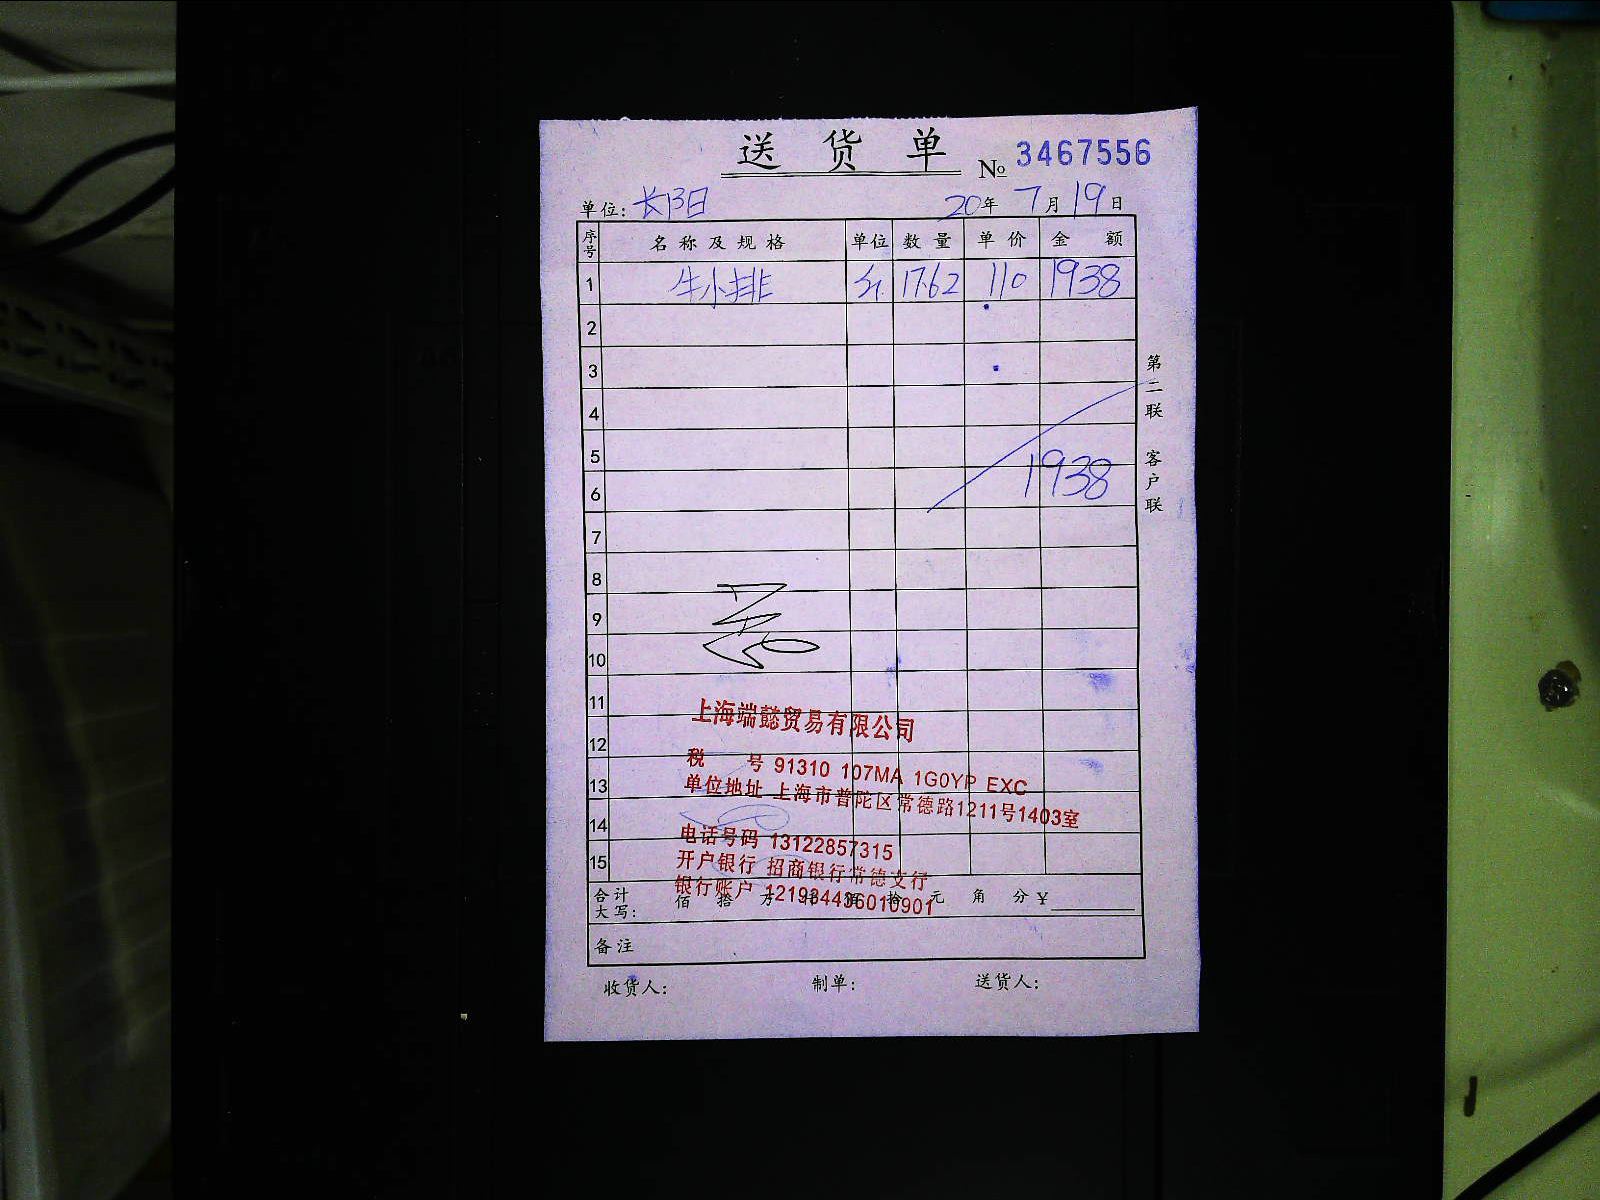 送货单 № 3467556
单位: 长阳 20年 7月 19日
序号 名称及规格 单位 数量 单价 金额
1 牛小排 斤 17.62 110 1938
2
3
4
5
6 1938
7
8
9
10
11
12
13
14
15
第二联 客户联
上海端懿贸易有限公司
税 号 91310 107MA 1G0YP EXC
单位地址 上海市普陀区常德路1211号1403室
电话号码 13122857315
开户银行 招商银行常德支行
银行账户 121934436010901
合计大写: 佰 拾 万 仟 佰 拾 元 角 分 ¥
备注
收货人: 制单: 送货人: